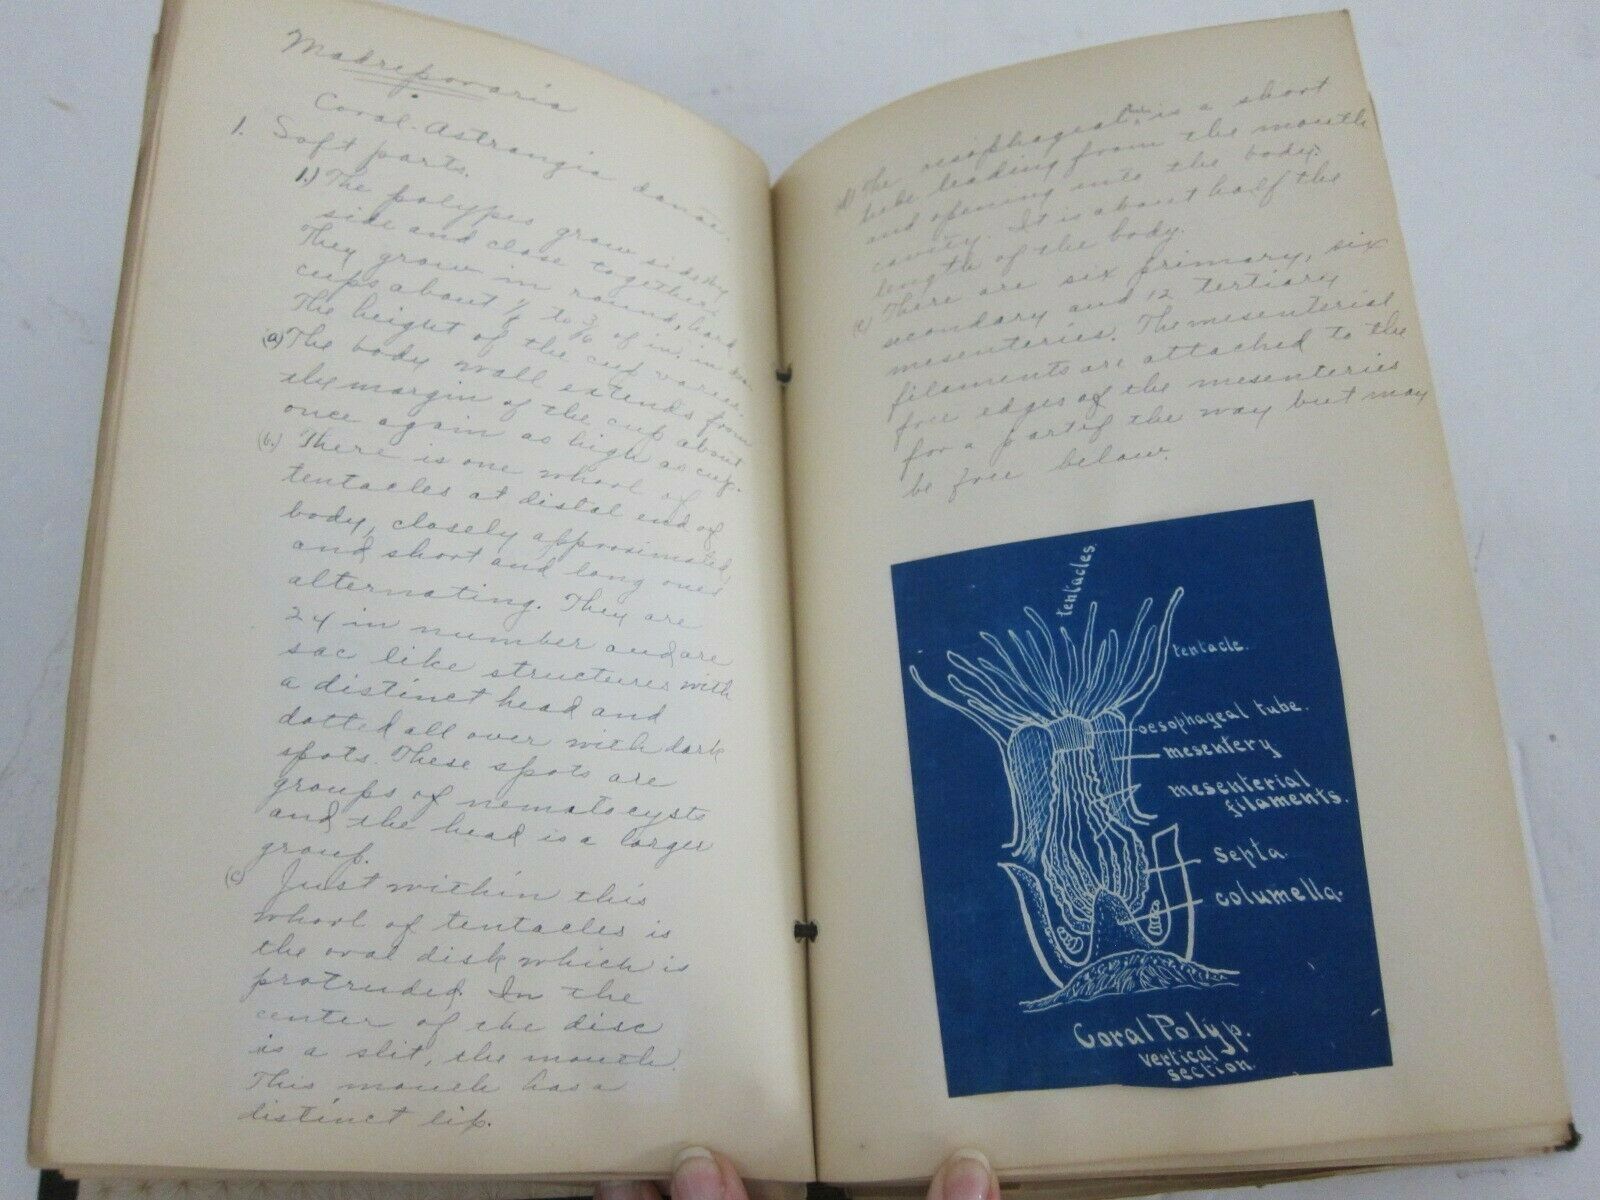 Madreporaria
Coral-Astrangia danae.
1. Soft parts.
1.) The polypes grow side by
side and close together.
They grow in round, hard
cups about 1/8 to 3/16 of in. in
The height of the cup varies.
(a) The body wall extends from
the margin of the cup about
once again as high as cup.
(b.) There is one whorl of
tentacles at distal end of
body, closely approximated,
and short and long ones
alternating. They are
24 in number and are
sac like structures with
a distinct head and
dotted all over with dark
spots. These spots are
groups of nematocysts
and the head is a larger
group.
(c) Just within this
whorl of tentacles is
the oral disk which is
protruded. In the
center of the disc
is a slit, the mouth.
This mouth has a
distinct lip.
d) The oesophageal tube is a short
tube leading from the mouth
and opening into the body
cavity. It is about half the
length of the body.
(e) There are six primary, six
secondary and 12 tertiary
mesenteries. The mesenterial
filaments are attached to the
free edges of the mesenteries
for a part of the way but may
be free below.
tentacles.
tentacle.
oesophageal tube.
mesentery
mesenterial
filaments.
Septa.
columella.
Coral Polyp.
vertical
section.